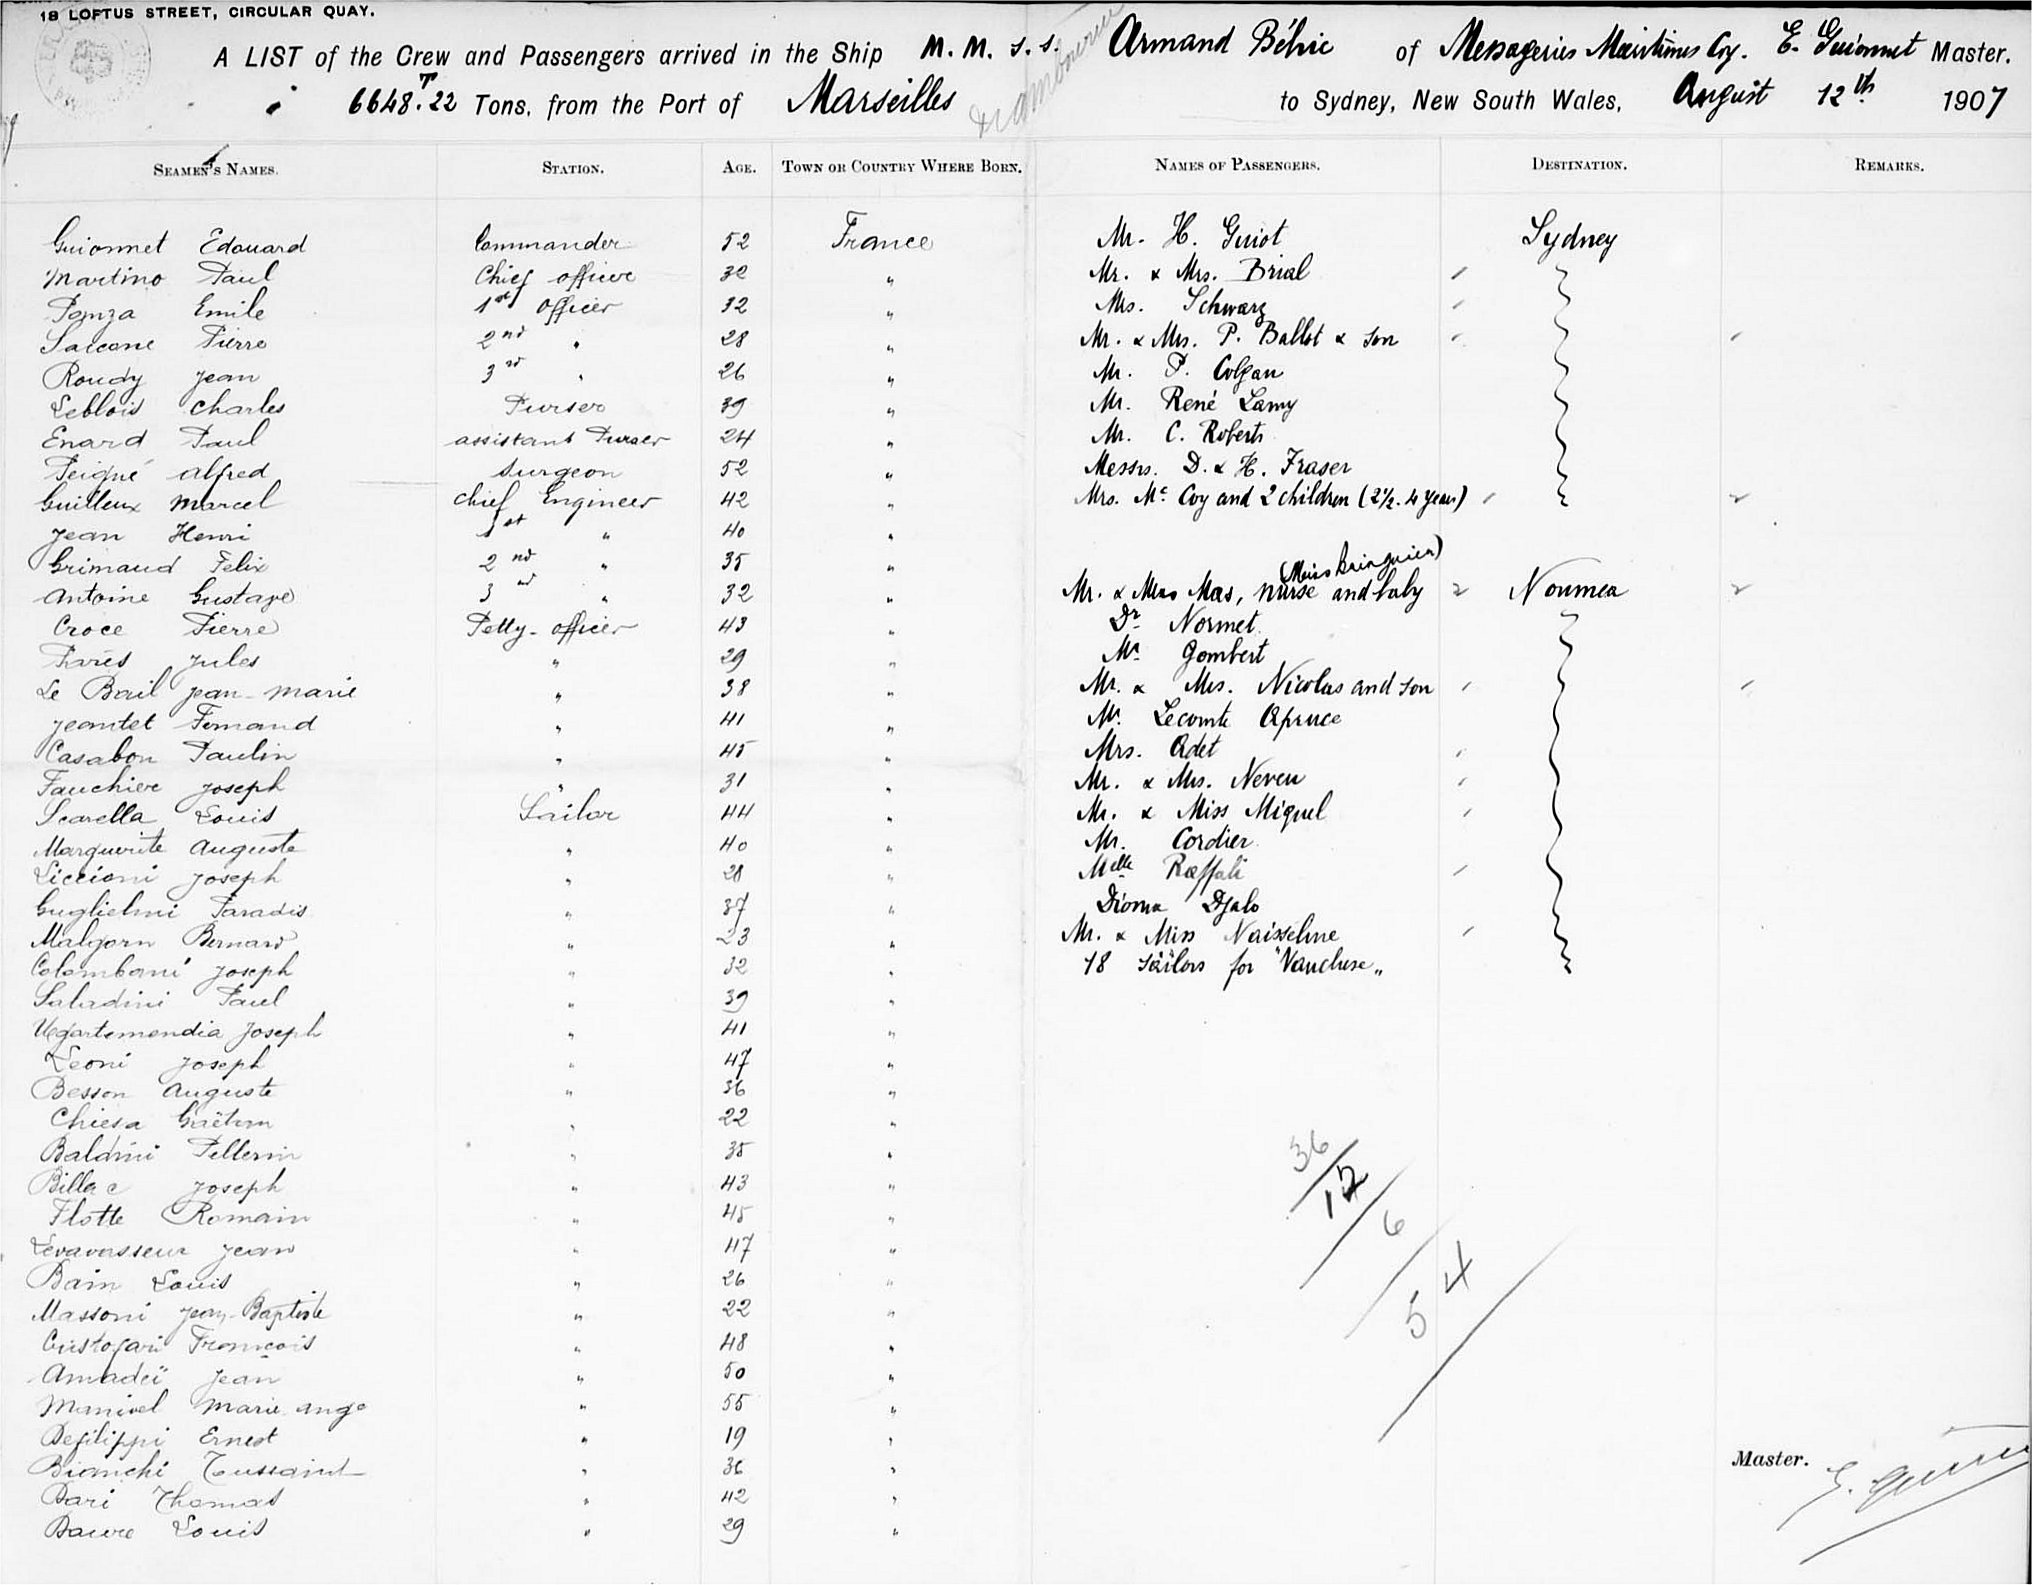 18 LOFTUS STREET, CIRCULAR QUAY.
A LIST of the Crew and Passengers arrived in the Ship M. M. s. s. Armand Béhic of Messageries Maritimes Coy. E. Guionnet Master.
6648.T22 Tons, from the Port of Marseilles to Sydney, New South Wales, August 12th 1907
SEAMEN'S NAMES. STATION. AGE. TOWN OR COUNTRY WHERE BORN. NAMES OF PASSENGERS. DESTINATION. REMARKS.
Guionnet Edouard Commander 52 France Mr. H. Guiot Sydney
Martino Paul Chief officer 32 " Mr. & Mrs. Brial
Panza Emile 1st Officer 32 " Mrs. Schwarz
Saccone Pierre 2nd " 28 " Mr. & Mrs. P. Ballot & son
Roudy Jean 3rd " 26 " Mr. P. Colgan
Leblois Charles Purser 39 " Mr. René Lamy
Enard Paul assistant Purser 24 " Mr. C. Roberts
Peigné Alfred Surgeon 52 " Messrs. D. & H. Fraser
Guilleux Marcel Chief Engineer 42 " Mrs. Mc Coy and 2 children (2 1/2. 4 years)
Jean Henri 1st " 40 "
Grimaud Felix 2nd " 35 "
Antoine Gustave 3rd " 32 " Mr. & Mrs Mas, nurse and baby Noumea
Croce Pierre Petty-officer 43 " Dr Normet
Jules " 29 " Mr. Gombert
Le Bail Jean-Marie " 38 " Mr. & Mrs. Nicolas and son
Jeantet Fernand " 41 " Mr. Lecomte
Casabon Paulin " 45 " Mrs. Adet
Fauchier Joseph " 31 " Mr. & Mrs. Neveu
Scarella Louis Sailor 44 " Mr. & Miss Miquel
Marguerite Auguste " 40 " Mr. Cordier
Liccioni Joseph " 28 " Melle Raffali
Guglielmi Paradis " 37 " Dioma Djalo
Malgorn Bernard " 23 " Mr. & Miss Naisseline
Colombani Joseph " 32 " 18 sailors for "Vaucluse"
Saladini Paul " 39 "
Ugartemendia Joseph " 41 "
Leoni Joseph " 47 "
Besson Auguste " 36 "
Chiesa Gaëtan " 22 "
Baldini Pellerin " 35 "
Billac Joseph " 43 "
Flotte Romain " 45 "
Levavasseur Jean " 47 "
Bain Louis " 26 "
Massoni Jean-Baptiste " 22 "
François " 48 "
Amadeï Jean " 50 "
Manivel Marie ange " 55 "
Defilippi Ernest " 19 "
Bianchi Toussaint " 36 "
Bari Thomas " 42 "
Louis " 29 "
36
12
6
54
Master.